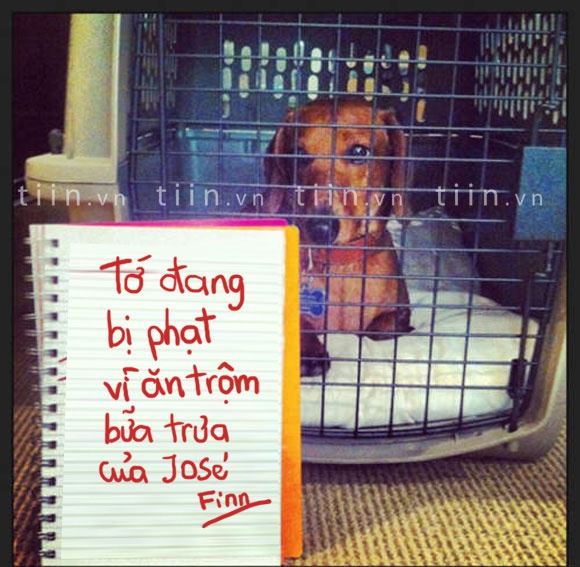 tiin.vn tiin.vn tiin.vn tiin.vn
Tớ đang
bị phạt
vì ăn trộm
bữa trưa
của José
Finn